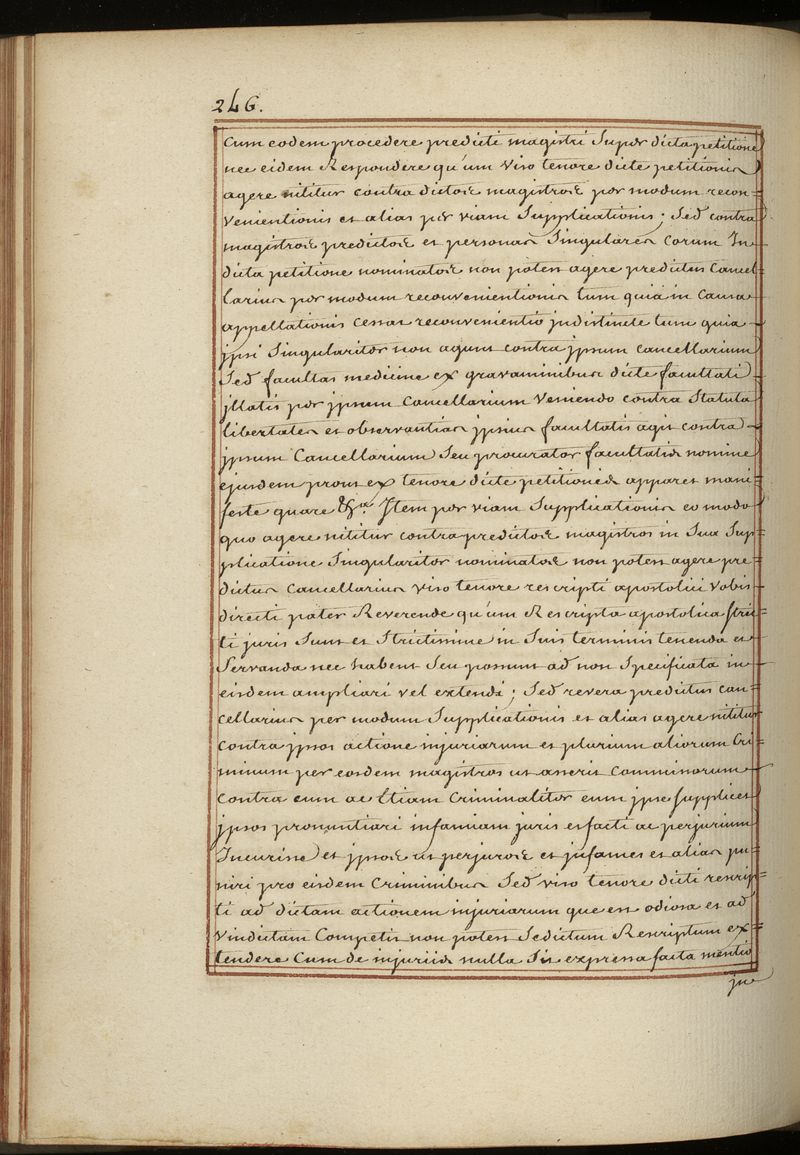 246.
Cum eodem procedere predicti magistri Super dicta petitione
nec eidem Respondere qu'um viso tenore dicte petitionis
agere nititur contra dictos magistros per modum recon=
Venientionis et alias per viam Supplicationis; Sed contra
magistros predictos et personas Singulares eorum In
dicta petitione nominatos non potest agere predictus Cancel=
larius per modum reconvenientionis tum quia in Causa
appellationis cessat reconvenientio indistincte tum quia
jpsi Singulariter non agunt contra jpsum cancellarium
Sed facultas medicine ex gravaminibus dicte facultati
jllatis per jpsum Cancellarium Veniendo contra Statuta
libertates et observantias jpsius facultatis agit contra
jpsum Cancellarium Seu procurator facultatis nomine
ejusdem prout ex tenore dicte petitionis apparet mani
feste quare &a. Jtem per viam Supplicationis eo modo
quo agere nititur contra predictos magistros in Sua Sup
plicatione Singulariter nominatos non potest agere pre=
dictus Cancellarius viso tenore rescripti apostolici Vobis
directi pater Reverende qu'um Rescripta apostolica stric=
ti juris Sunt et Strictissime in Suis terminis tenenda et
Servanda nec habent Seu possunt ad non Specificata in
eisdem ampliari vel extendi; Sed revera predictus can=
cellarius per modum Supplicationis et alias agere nititur
Contra jpsos actione injuriarum et plurium aliorum Cri=
minum per eosdem magistros ut asserit Comminorum
Contra eum ac Etiam Criminaliter eum jpse supplicet
jpsos pronuntiari infamiam juris et facti ac perjurium
Incurisse et jpsos ut perjuros et jnfames et alias pu=
niri pro eisdem Criminibus Sed viso tenore dicti rescrip=
ti ad dictam actionem injuriarum que est odiosa et ad
Vindictam Competit non potest Se dictum Rescriptum ex=
tendere Cum de injuriis nulla Sit expressa facta mentio
jn